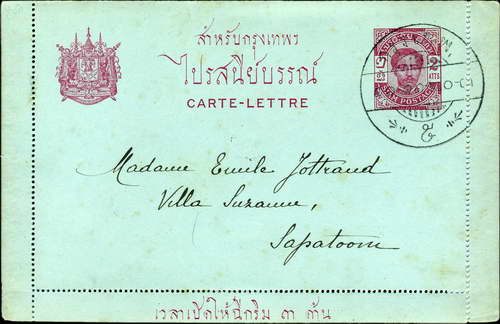 สำหรับกรุงเทพร
ไปรสนียบรรณ์
CARTE-LETTRE
2 ATTS
SIAM POSTAGE
Madame Emile Jottrand
Villa Suzanne,
Sapatoom
เวลาเปิดให้ฉีกริม ๓ ด้าน